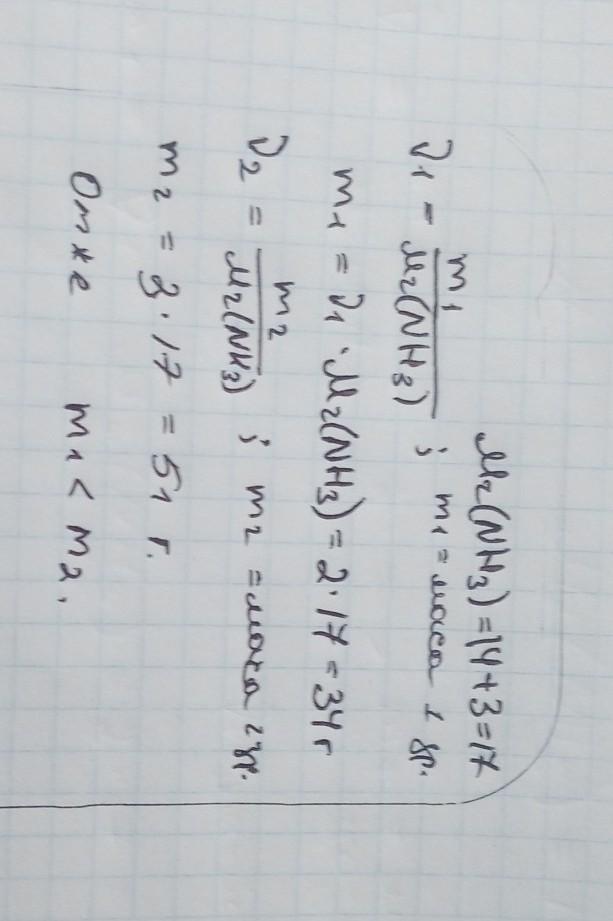 Mr(NH3) = 14 + 3 = 17
ν1 = m1/Mr(NH3) ; m1 = маса 1 зр.
m1 = ν1 · Mr(NH3) = 2 · 17 = 34 г
ν2 = m2/Mr(NH3) ; m2 = маса 2 зр.
m2 = 3 · 17 = 51 г.
Отже m1 < m2.